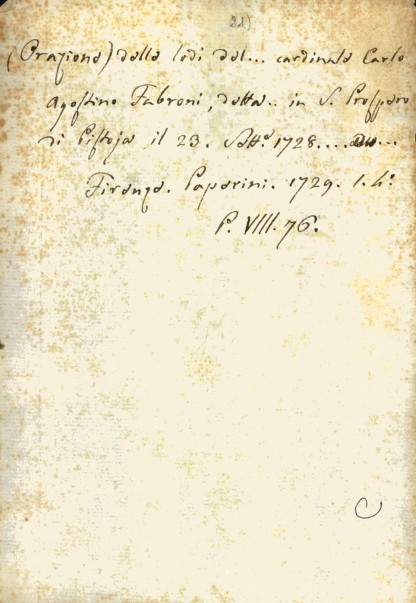 21)
(Orazione) delle lodi del... cardinale Carlo
Agostino Fabroni, detta.. in S. Prospero
di Pistoja il 23. Sett.e 1728....
Firenze. Paperini. 1729. 1. 4.o
P. VIII. 76.